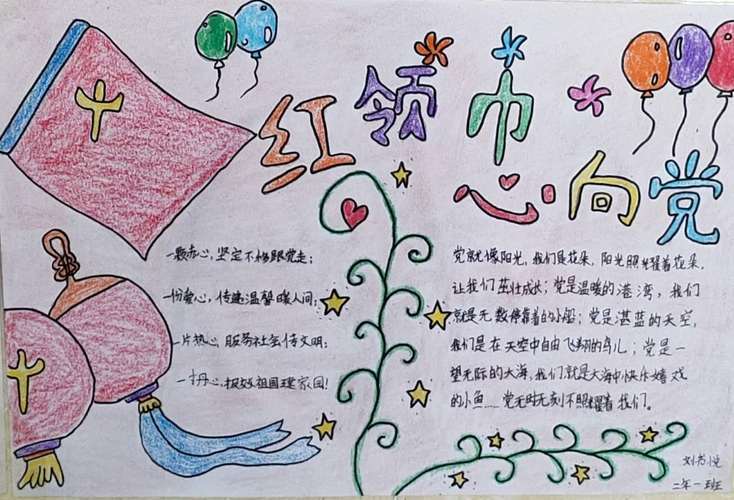 红领巾
心向党
一颗赤心,坚定不移跟党走;
一份爱心,传递温馨暖人间;
一片热心,服务社会传文明;
一片丹心,报效祖国建家园!
党就像阳光,我们是花朵,阳光照耀着花朵,
让我们茁壮成长;党是温暖的港湾,我们
就是无数停靠着的小船;党是湛蓝的天空,
我们是在天空中自由飞翔的鸟儿;党是一
望无际的大海,我们就是大海中快乐嬉戏
的小鱼……党无时无刻不照耀着我们。
刘书悦
二年一班